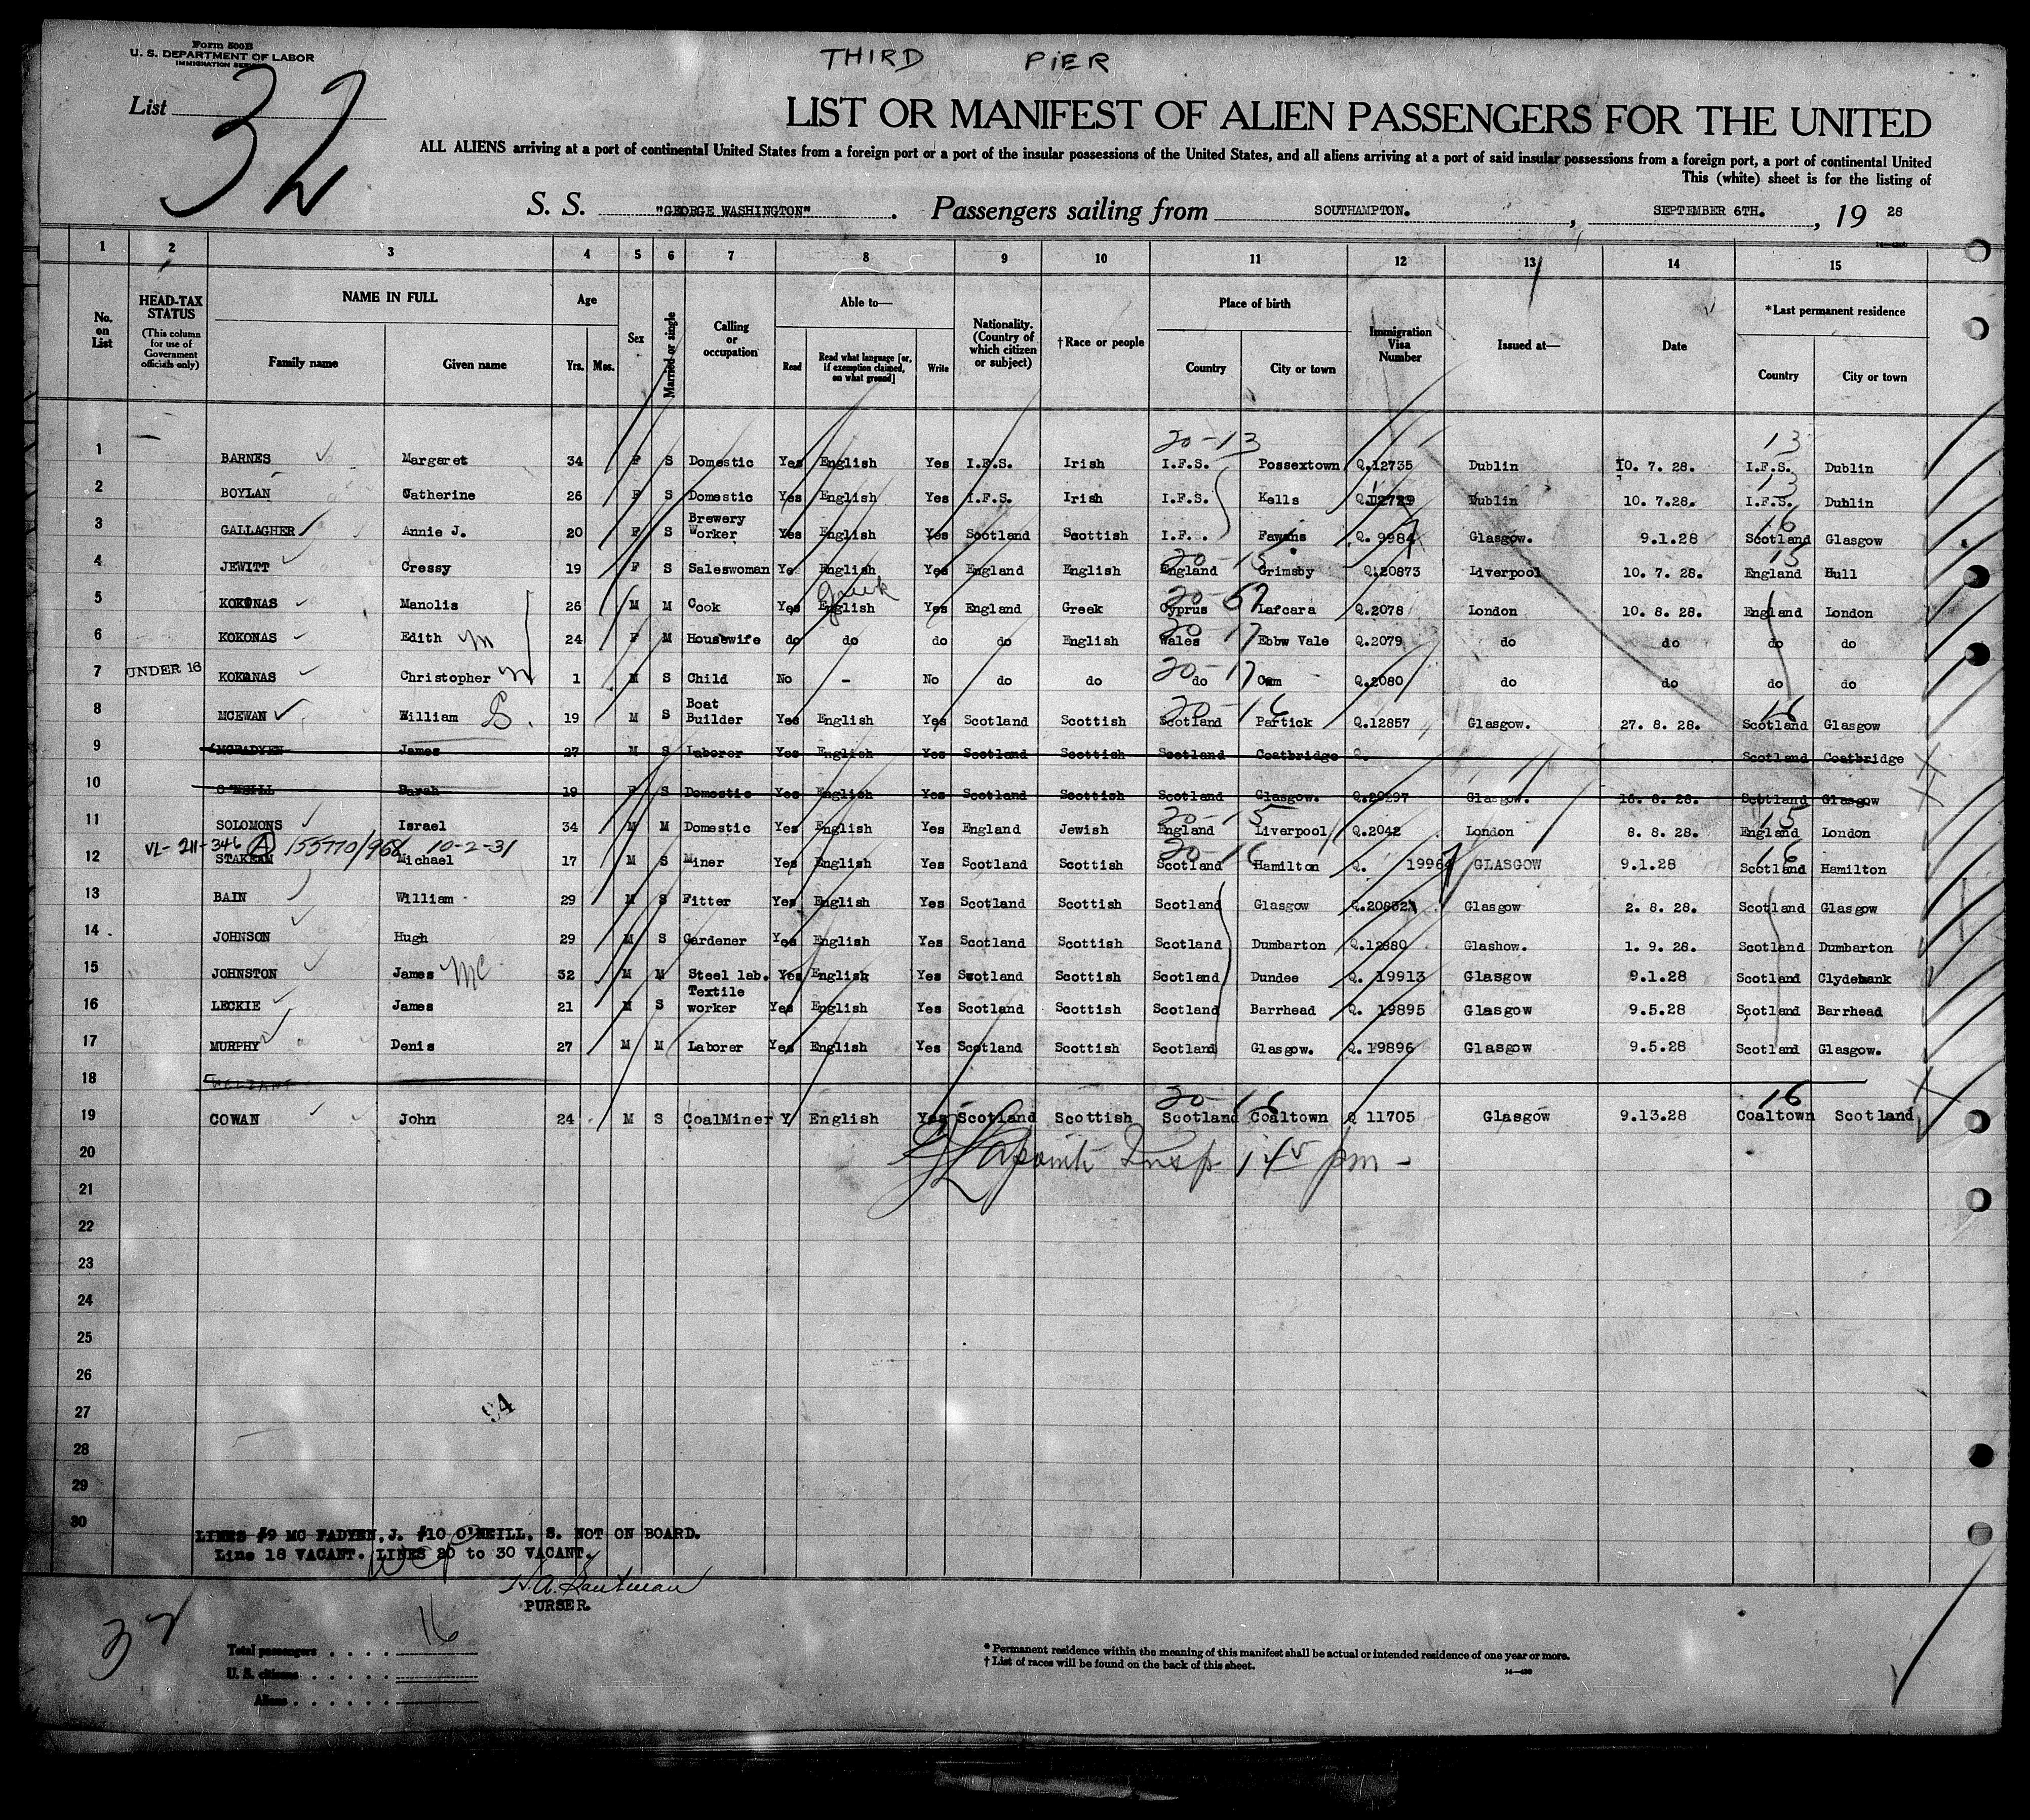 Form 500B
U. S. DEPARTMENT OF LABOR
IMMIGRATION SERVICE
THIRD PIER
List 32
LIST OR MANIFEST OF ALIEN PASSENGERS FOR THE UNITED
ALL ALIENS arriving at a port of continental United States from a foreign port or a port of the insular possessions of the United States, and all aliens arriving at a port of said insular possessions from a foreign port, a port of continental United
This (white) sheet is for the listing of
S. S. "GEORGE WASHINGTON". Passengers sailing from SOUTHAMPTON., SEPTEMBER 6TH., 19 28
1 2 3 4 5 6 7 8 9 10 11 12 13 14 15
No. on List
HEAD-TAX STATUS (This column for use of Government officials only)
NAME IN FULL Family name Given name
Age Yrs. Mos.
Sex
Married or single
Calling or occupation
Able to— Read Read what language [or, if exemption claimed, on what ground] Write
Nationality. (Country of which citizen or subject)
†Race or people
Place of birth Country City or town
Immigration Visa Number
Issued at—
Date
*Last permanent residence Country City or town
20-13 13
1 BARNES Margaret 34 F S Domestic Yes English Yes I.F.S. Irish I.F.S. Possextown Q.12735 Dublin 10. 7. 28. I.F.S. Dublin
13
2 BOYLAN Catherine 26 F S Domestic Yes English Yes I.F.S. Irish I.F.S. Kells Dublin 10. 7.28. I.F.S. Dublin
16
3 GALLAGHER Annie J. 20 F S Brewery Worker Yes English Yes Scotland Scottish I.F.S. Fawans Q. 9984 Glasgow. 9.1.28 Scotland Glasgow
20-15 15
4 JEWITT Cressy 19 F S Saleswoman Yes English Yes England English England Grimsby Q.20873 Liverpool 10. 7. 28. England Hull
Greek 20-67
5 KOKONAS Manolis 26 M M Cook Yes English Yes England Greek Cyprus Lafcara Q.2078 London 10. 8. 28. England London
20 17
6 KOKONAS Edith M 24 F M Housewife do do do do English Wales Ebbw Vale Q.2079 do do do do
20-17
7 UNDER 16 KOKONAS Christopher M 1 M S Child No - No do do do Cam Q.2080 do do do do
20-16 16
8 MCEWAN William S. 19 M S Boat Builder Yes English Yes Scotland Scottish Scotland Partick Q.12857 Glasgow. 27. 8. 28. Scotland Glasgow
9 MCFADYEN James 27 M S Laborer Yes English Yes Scotland Scottish Scotland Coatbridge Q. Scotland Coatbridge
10 O'NEILL Sarah 19 F S Domestic Yes English Yes Scotland Scottish Scotland Glasgow. Q.20297 Glasgow. 16. 8. 28. Scotland Glasgow
20-15 15
11 SOLOMONS Israel 34 M M Domestic Yes English Yes England Jewish England Liverpool Q.2042 London 8. 8. 28. England London
VL-211-346 A 155770/968 10-2-31 20-16 16
12 Michael 17 M S Miner Yes English Yes Scotland Scottish Scotland Hamilton Q. 19964 GLASGOW 9.1.28 Scotland Hamilton
13 BAIN William 29 M S Fitter Yes English Yes Scotland Scottish Scotland Glasgow Glasgow 2. 8. 28. Scotland Glasgow
14 JOHNSON Hugh 29 M S Gardener Yes English Yes Scotland Scottish Scotland Dumbarton Q.12880 Glashow. 1. 9. 28. Scotland Dumbarton
15 JOHNSTON James Mc 32 M M Steel lab. Yes English Yes Scotland Scottish Scotland Dundee Q. 19913 Glasgow 9.1.28 Scotland Clydebank
16 LECKIE James 21 M S Textile worker Yes English Yes Scotland Scottish Scotland Barrhead Q. 19895 Glasgow 9.5.28 Scotland Barrhead
17 MURPHY Denis 27 M M Laborer Yes English Yes Scotland Scottish Scotland Glasgow. Q.19896 Glasgow 9.5.28 Scotland Glasgow.
18
20-16 16
19 COWAN John 24 M S CoalMiner Y English Yes Scotland Scottish Scotland Coaltown Q 11705 Glasgow 9.13.28 Coaltown Scotland
20 Insp 1 45 pm -
21
22
23
24
25
26
27
94
28
29
30
LINES #9 MC FADYEN, J. #10 O'NEILL, S. NOT ON BOARD.
Line 18 VACANT. LINES 20 to 30 VACANT.
PURSER.
Total passengers . . . . 16
U. S. citizens . . . . .
Aliens . . . . . .
* Permanent residence within the meaning of this manifest shall be actual or intended residence of one year or more.
† List of races will be found on the back of this sheet.